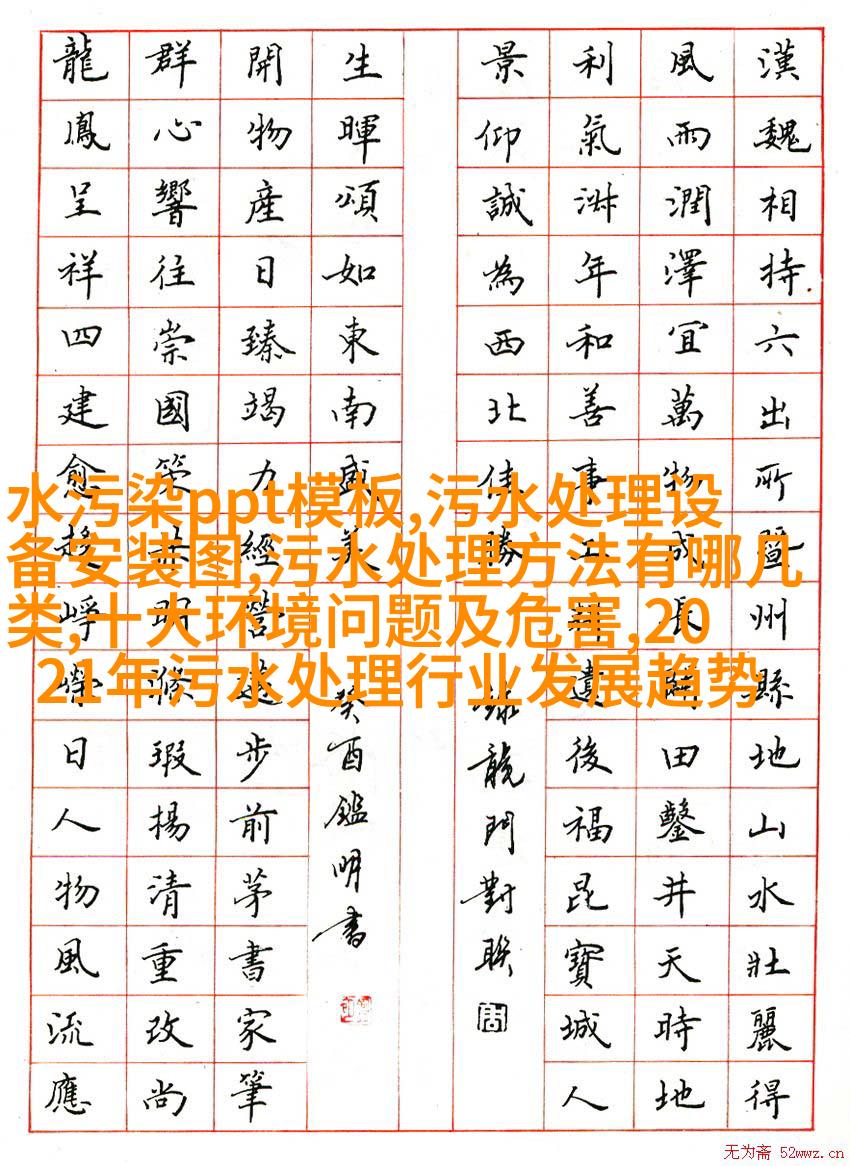 漢魏相持六出所暨州縣地山水壯麗得
風雨潤澤宜萬物成長闢田鑿井天時地
利氣淑年和善事工遺後福昆寶城人
景仰誠為西北佳勝
錄龍門對聯
生暉頌如東南盛美
癸酉鑑明書
開物產日臻竭力經營步前茅書家筆
群心響往崇國策明滌瑕揚清重改尚
龍鳳呈祥四建愈崢嶸日人物風流應
水污染ppt模板,污水处理设
备安装图,污水处理方法有哪几
类,十大环境问题及危害,20
21年污水处理行业发展趋势
无为斋 52wwz.cn